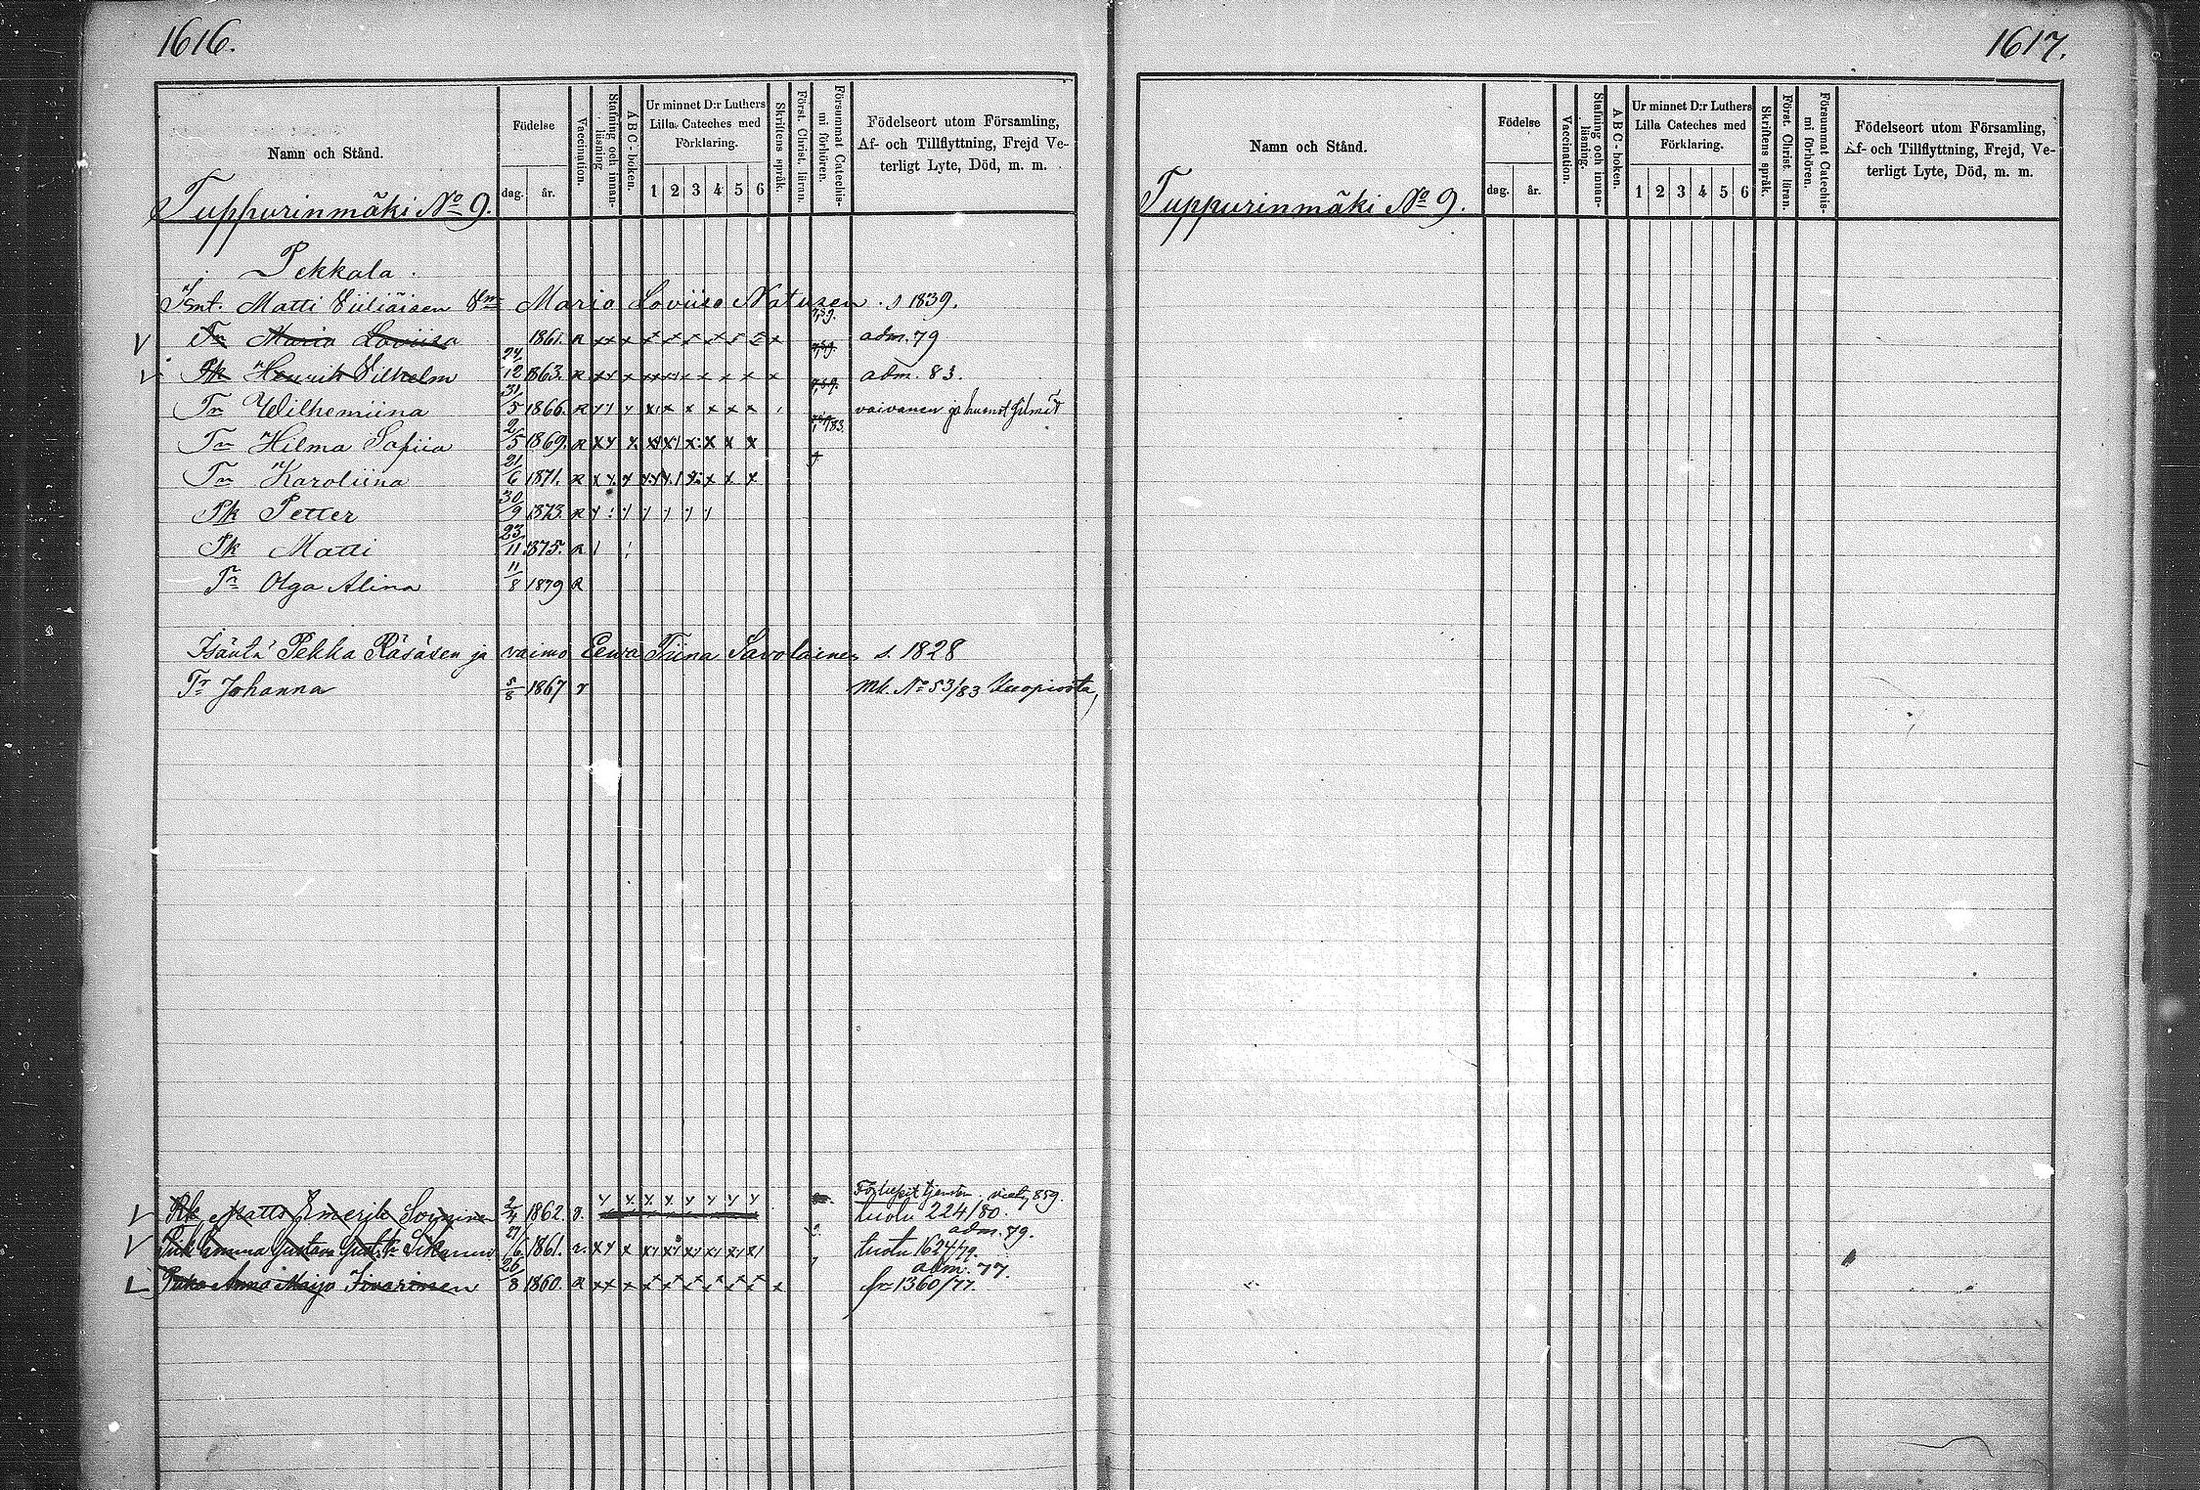 1616.
Namn och Stånd.
Födelse
dag. år.
Vaccination.
Stafning och innan-läsning
A B C - boken.
Ur minnet D:r Luthers
Lilla Cateches med
Förklaring.
1 2 3 4 5 6
Skriftens språk.
Först. Christ. läran.
Försummat Catechis-mi förhören.
Födelseort utom Församling,
Af- och Tillflyttning, Frejd Ve-
terligt Lyte, Död, m. m.
Tuppurinmäki No 9.
Pekkala.
Matti Väliäisen Maria Loviisa Natusen s 1839.
Tr Maria Loviisa 1861. R adm. 79
Pk Henrik Vilhelm 24/12 1863. R adm. 83.
Tr Wilhemiina 31/5 1866. R vaivanen ja
Tr Hilma Sofiia 2/5 1869. R
Tr Karoliina 21/6 1871. R
Pk Petter 30/9 1873. R
Pk Matti 23/11 1875. R
Tr Olga Alina 11/8 1879 R
Isäntä Pekka Räsäsen ja vaimo Eewa Tiina Savolainen s. 1828
Tr Johanna 5/8 1867 r Mk. No 53/83 Kuopiosta,
Rk Matts Emerik Soininen 2/4 1862. r. tuolu 224/80.
adm. 79.
Gustava 27/6 1861. r. tuotu 1624/79.
adm. 77.
Anna Maija Iivarinen 26/8 1860. R fr 1360/77.
1617.
Namn och Stånd.
Födelse
dag. år.
Vaccination.
Stafning och innan-läsning.
A B C - boken.
Ur minnet D:r Luthers
Lilla Cateches med
Förklaring.
1 2 3 4 5 6
Skriftens språk.
Först. Christ. läran.
Försummat Catechis-mi förhören.
Födelseort utom Församling,
Af- och Tillflyttning, Frejd, Ve-
terligt Lyte, Död, m. m.
Tuppurinmäki No 9.